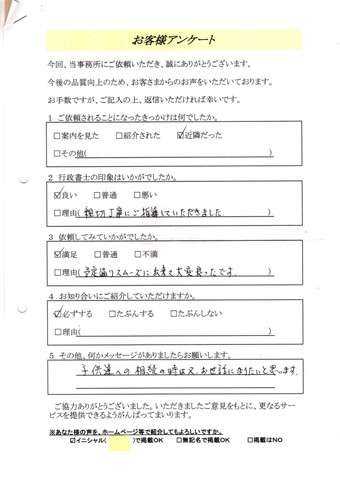 お客様アンケート
今回、当事務所にご依頼いただき、誠にありがとうございます。
今後の品質向上のため、お客さまからのお声をいただいております。
お手数ですが、ご記入の上、返信いただければ幸いです。
1 ご依頼されることになったきっかけは何でしたか。
□案内を見た □紹介された ☑近隣だった
□その他( )
2 行政書士の印象はいかがでしたか。
☑良い □普通 □悪い
□理由( 親切丁寧にご指導していただきました )
3 依頼してみていかがでしたか。
☑満足 □普通 □不満
□理由( 予定通りスムーズに出来て大変良かったです )
4 お知り合いにご紹介していただけますか。
☑必ずする □たぶんする □たぶんしない
□理由( )
5 その他、何かメッセージがありましたらお願いします。
子供達への相続の時は又、お世話になりたいと思います。
ご協力ありがとうございました。いただきましたご意見をもとに、更なるサー
ビスを提供できるようがんばってまいります。
※あなた様の声を、ホームページ等で紹介してもよろしいですか。
☑イニシャル( )で掲載OK □無記名で掲載OK □掲載はNO